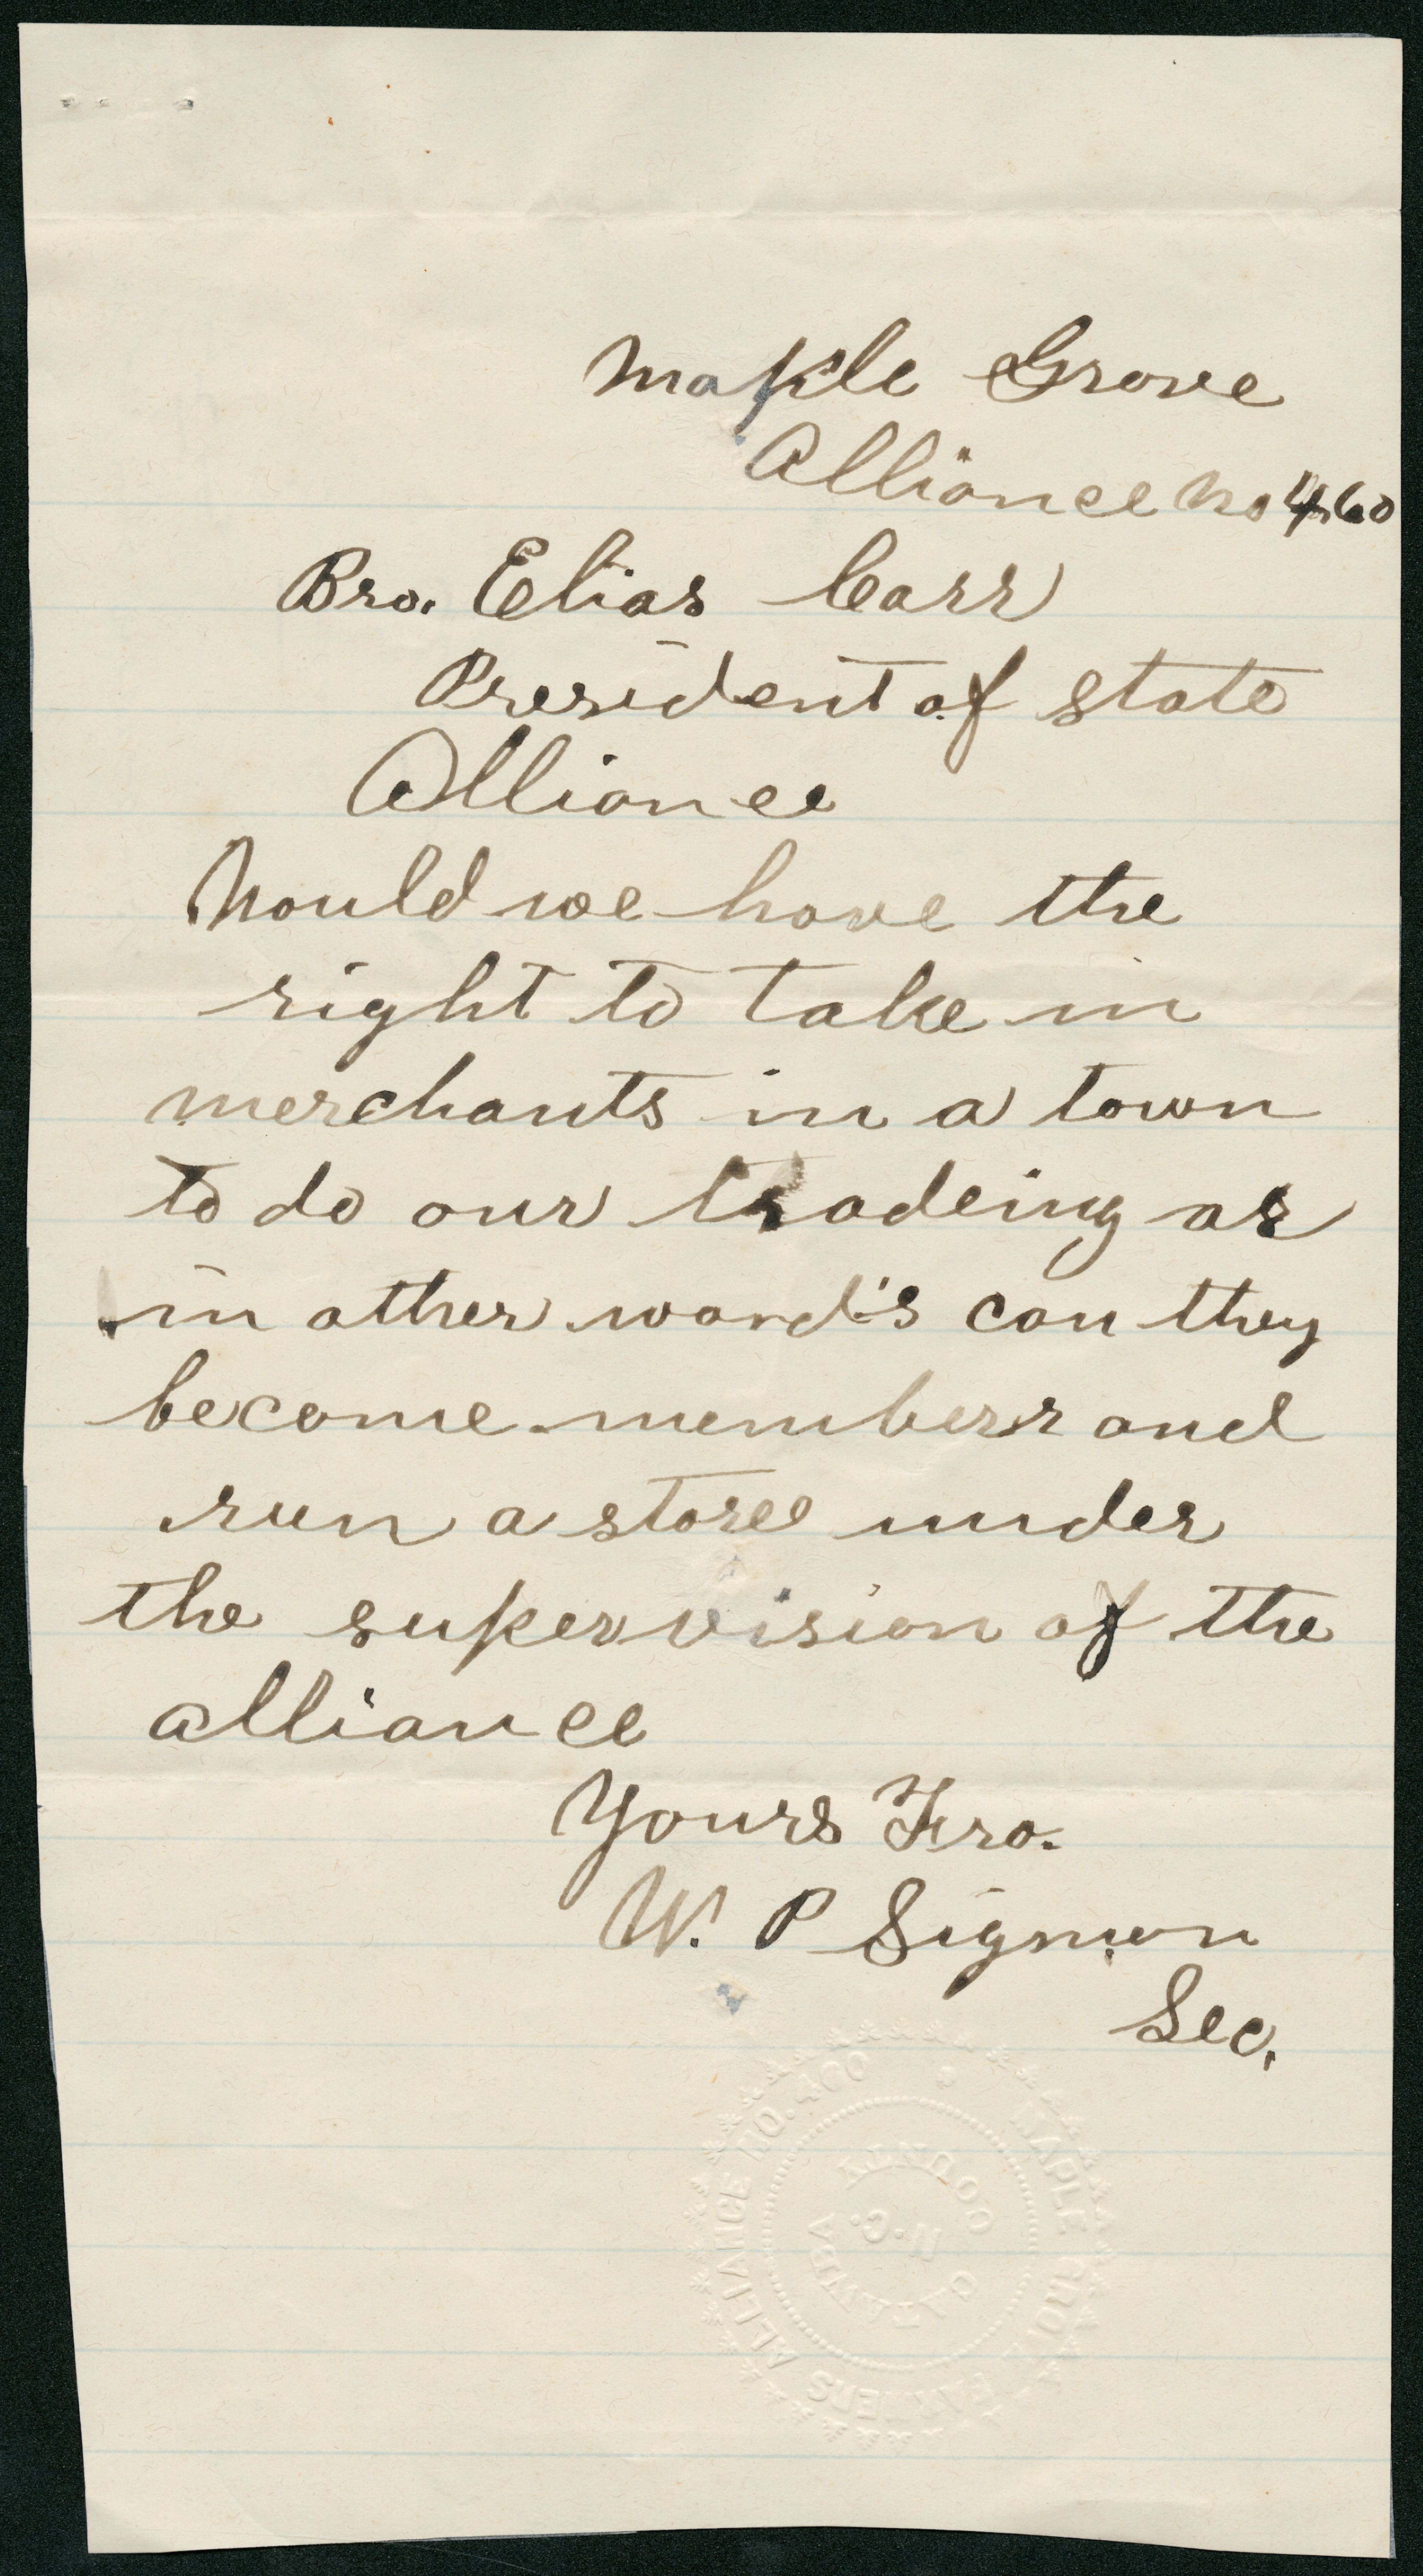 Maple Grove
Alliance No 460
Bro. Elias Carr
President of State
Alliance
Would we have the
right to take in
merchants in a town
to do our tradeing or
in other word's can they
become members and
run a store under
the supervision of the
alliance
Yours Fro.
W. P Sigmon
Sec.
MAPLE GROVE FARMERS ALLIANCE NO. 460
CATAWBA COUNTY
N.C.